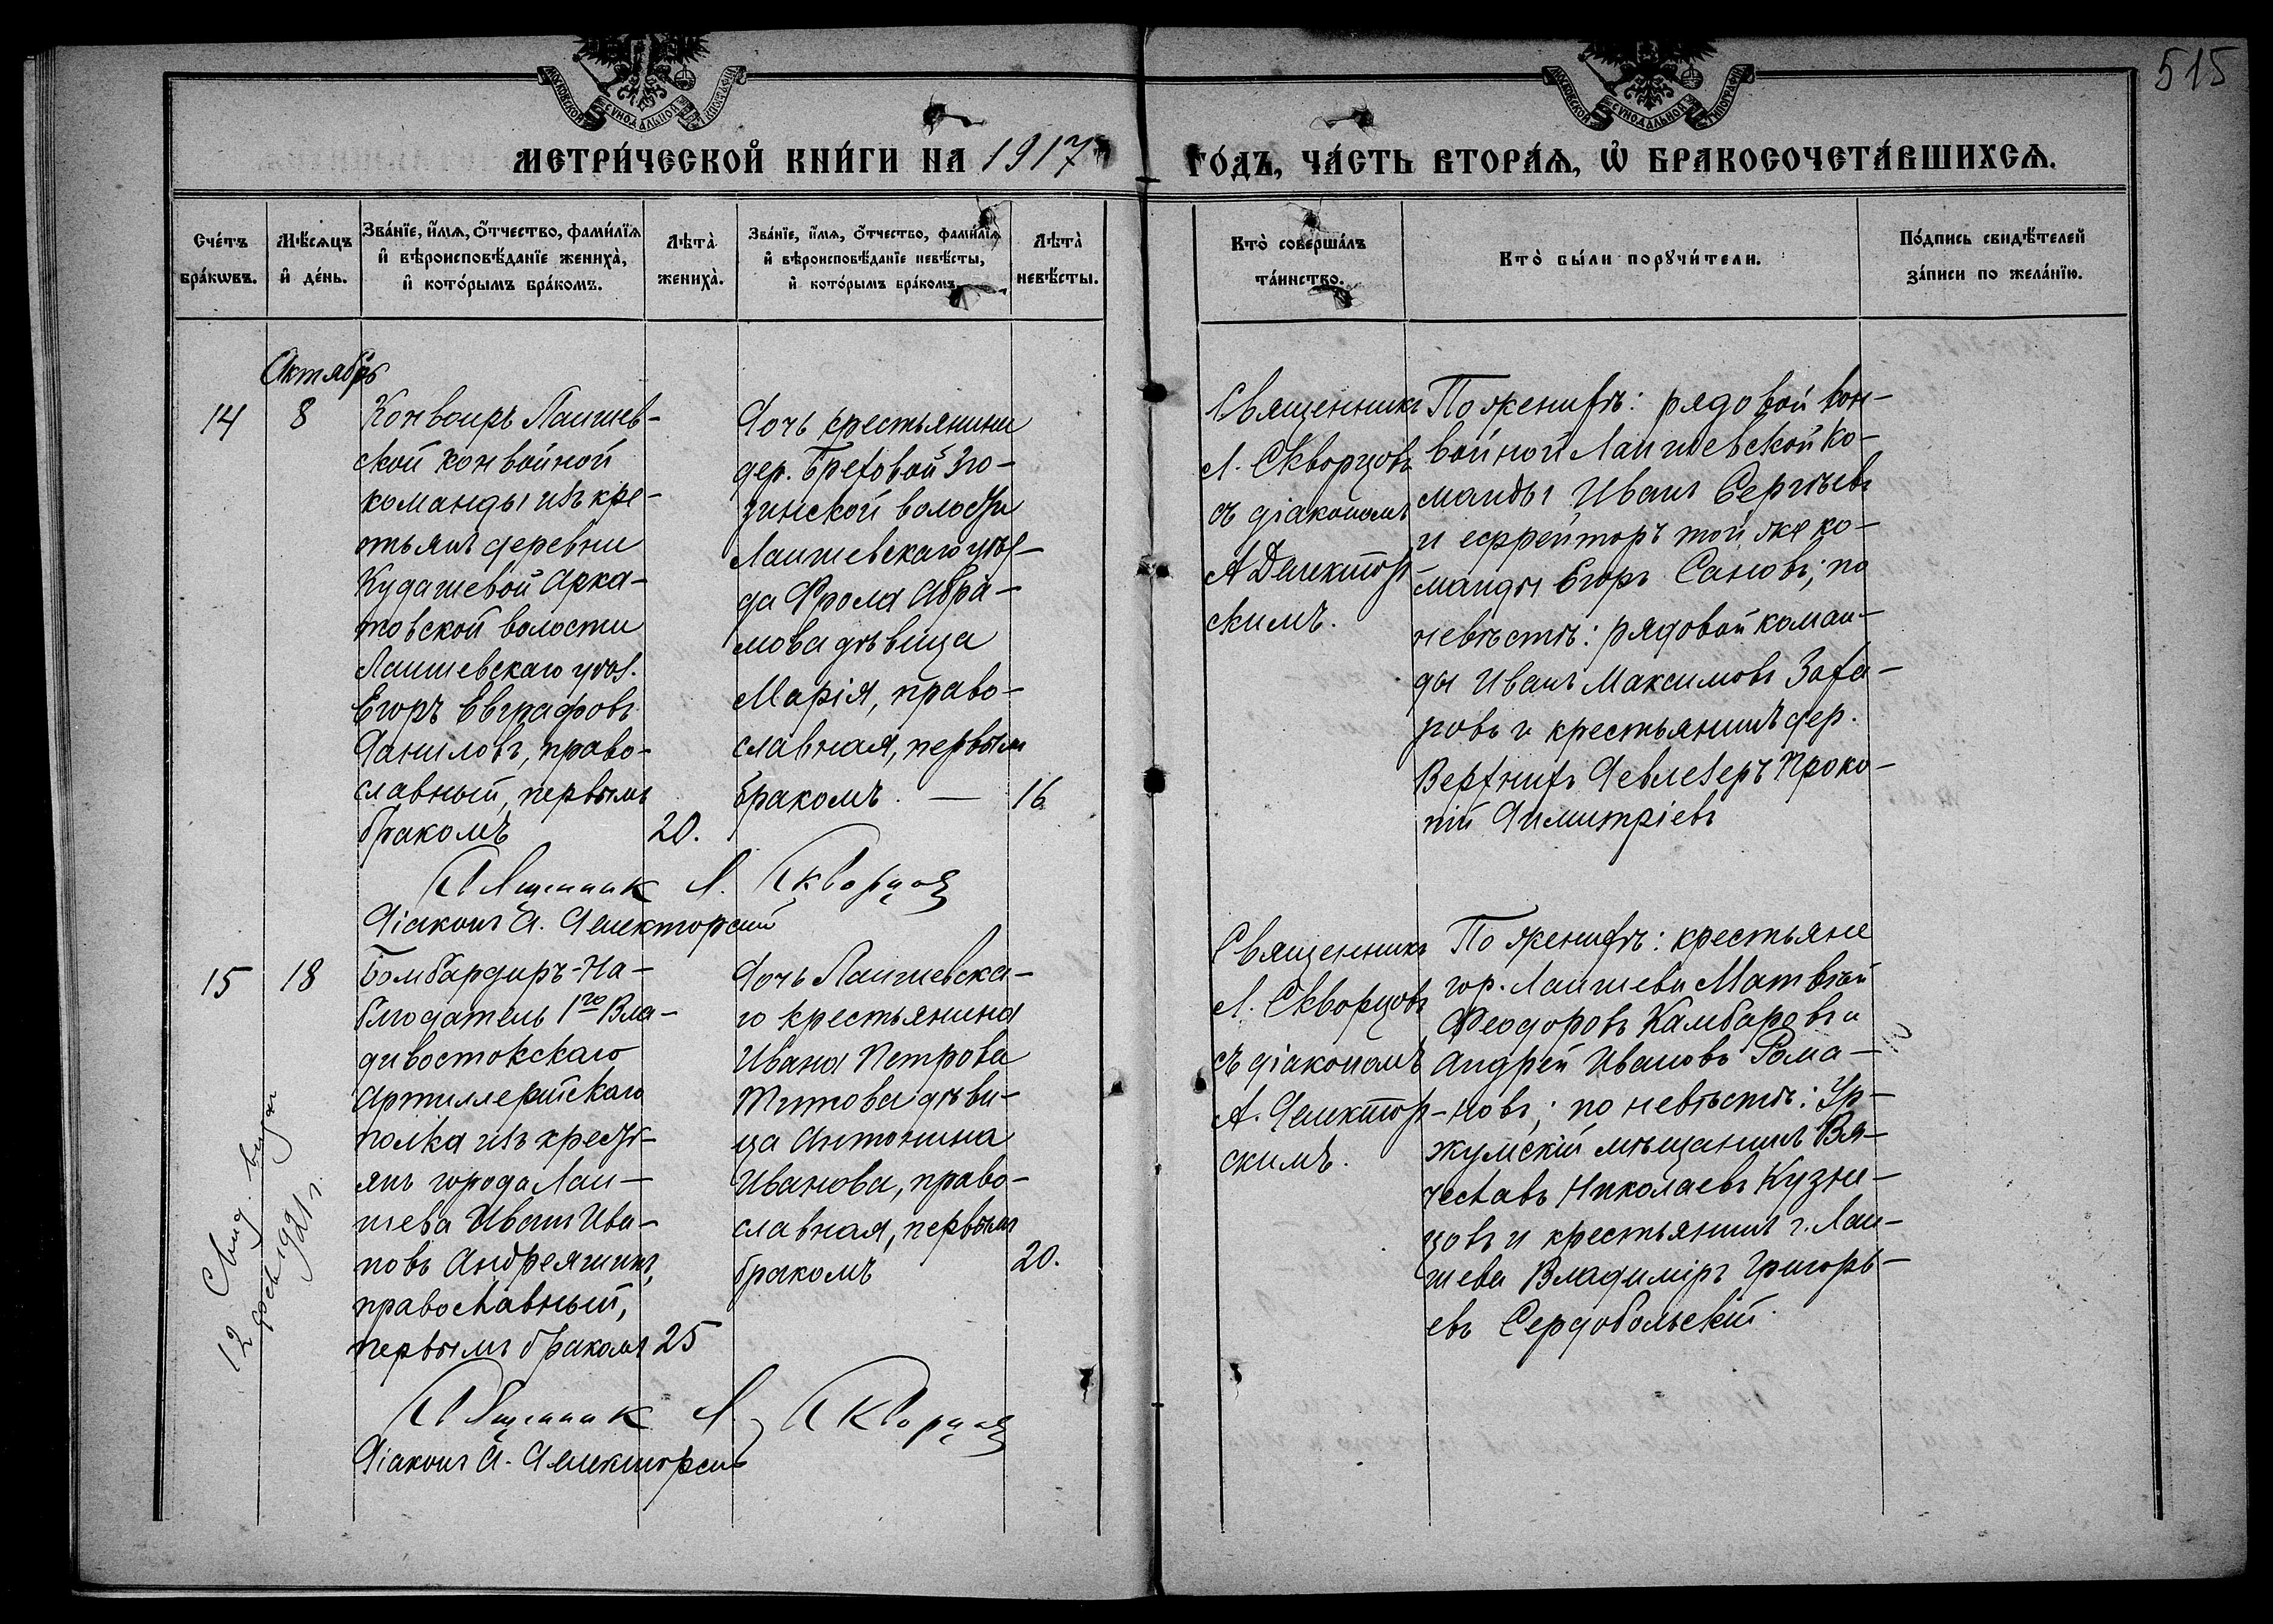 515
МОСКОВСКОЙ СѴНОДАЛЬНОЙ ТИПОГРАФІИ
МОСКОВСКОЙ СѴНОДАЛЬНОЙ ТИПОГРАФІИ
МЕТРИ́ЧЕСКОЙ КНИ́ГИ НА 1917
ГО́ДЪ, ЧА́СТЬ ВТОРА́Ѧ, Ѽ БРАКОСОЧЕТА́ВШИХСѦ.
Сче́тъ
бра́кωвъ.
Мѣ́сѧцъ
и҆ де́нь.
Зва́нїе, и҆́мѧ, ѻ҆́тчество, фами́лїѧ
и҆ вѣроисповѣ́данїе жениха̀,
и҆ кото́рымъ бра́комъ.
Лѣта̀
жениха̀.
Зва́нїе, и҆́мѧ, ѻ҆́тчество, фами́лїѧ
и҆ вѣроисповѣ́данїе невѣ́сты,
и҆ кото́рымъ бра́комъ.
Лѣта̀
невѣ́сты.
Кто̀ соверша́лъ
та́инство.
Кто̀ бы́ли порꙋчи́тели.
По́дпись свидѣ́телей
за́писи по жела́нїю.
Октябрь
14
8
Конвоиръ Лаишев-
ской конвойной
команды изъ кре-
стьянъ деревни
Кудашевой Арка-
товской волости
Лаишевскаго уѣз.
Егоръ Евграфовъ
Даниловъ, право-
славный, первымъ
бракомъ
20.
Дочь крестьянина
дер. Бреховой Зю-
зинской волости
Лаишевскаго уѣз-
да Фрола Абра-
мова дѣвица
Марія, право-
славная, первымъ
бракомъ. —
16
Священникъ
Л. Скворцовъ
съ діакономъ
А Деликтор
скимъ.
По женихѣ: рядовой кон-
войной Лаишевской ко-
манды Иванъ Сергѣевъ
и ефрейторъ той же ко-
манды Егоръ Сановъ; по
невѣстѣ: рядовой коман-
ды Иванъ Максимовъ Заха-
ровъ и крестьянинъ дер.
Верхнихъ Девлезеръ Проко-
пій Димитріевъ
Священник Л. Скворцов
Діаконъ А. Деликторскій
15
18
Бомбардиръ-На-
блюдатель 1го Вла-
дивостокскаго
Артиллерійскаго
полка изъ кресть-
янъ города Лаи-
шева Иванъ Ива-
новъ Андреяшинъ,
православный,
первымъ бракомъ
25
Дочь Лаишевска-
го крестьянина
Ивана Петрова
Титова дѣви-
ца Антонина
Иванова, право-
славная, первымъ
бракомъ
20.
Священникъ
Л. Скворцовъ
съ діакономъ
А. Деликтор-
скимъ.
По женихѣ: крестьяне
гор. Лаишева Матвѣй
Феодоровъ Камбаровъ и
Андрей Ивановъ Рома-
новъ; по невѣстѣ: Ур-
жумскій мѣщанинъ Вя-
чеславъ Николаевъ Кузне-
цовъ и крестьянинъ г. Лаи-
шева Владиміръ Григорь-
евъ Сердобольскій.
Свид. выдан
12 1921 г.
Священник Л. Скворцов
Діаконъ А. Деликторскій